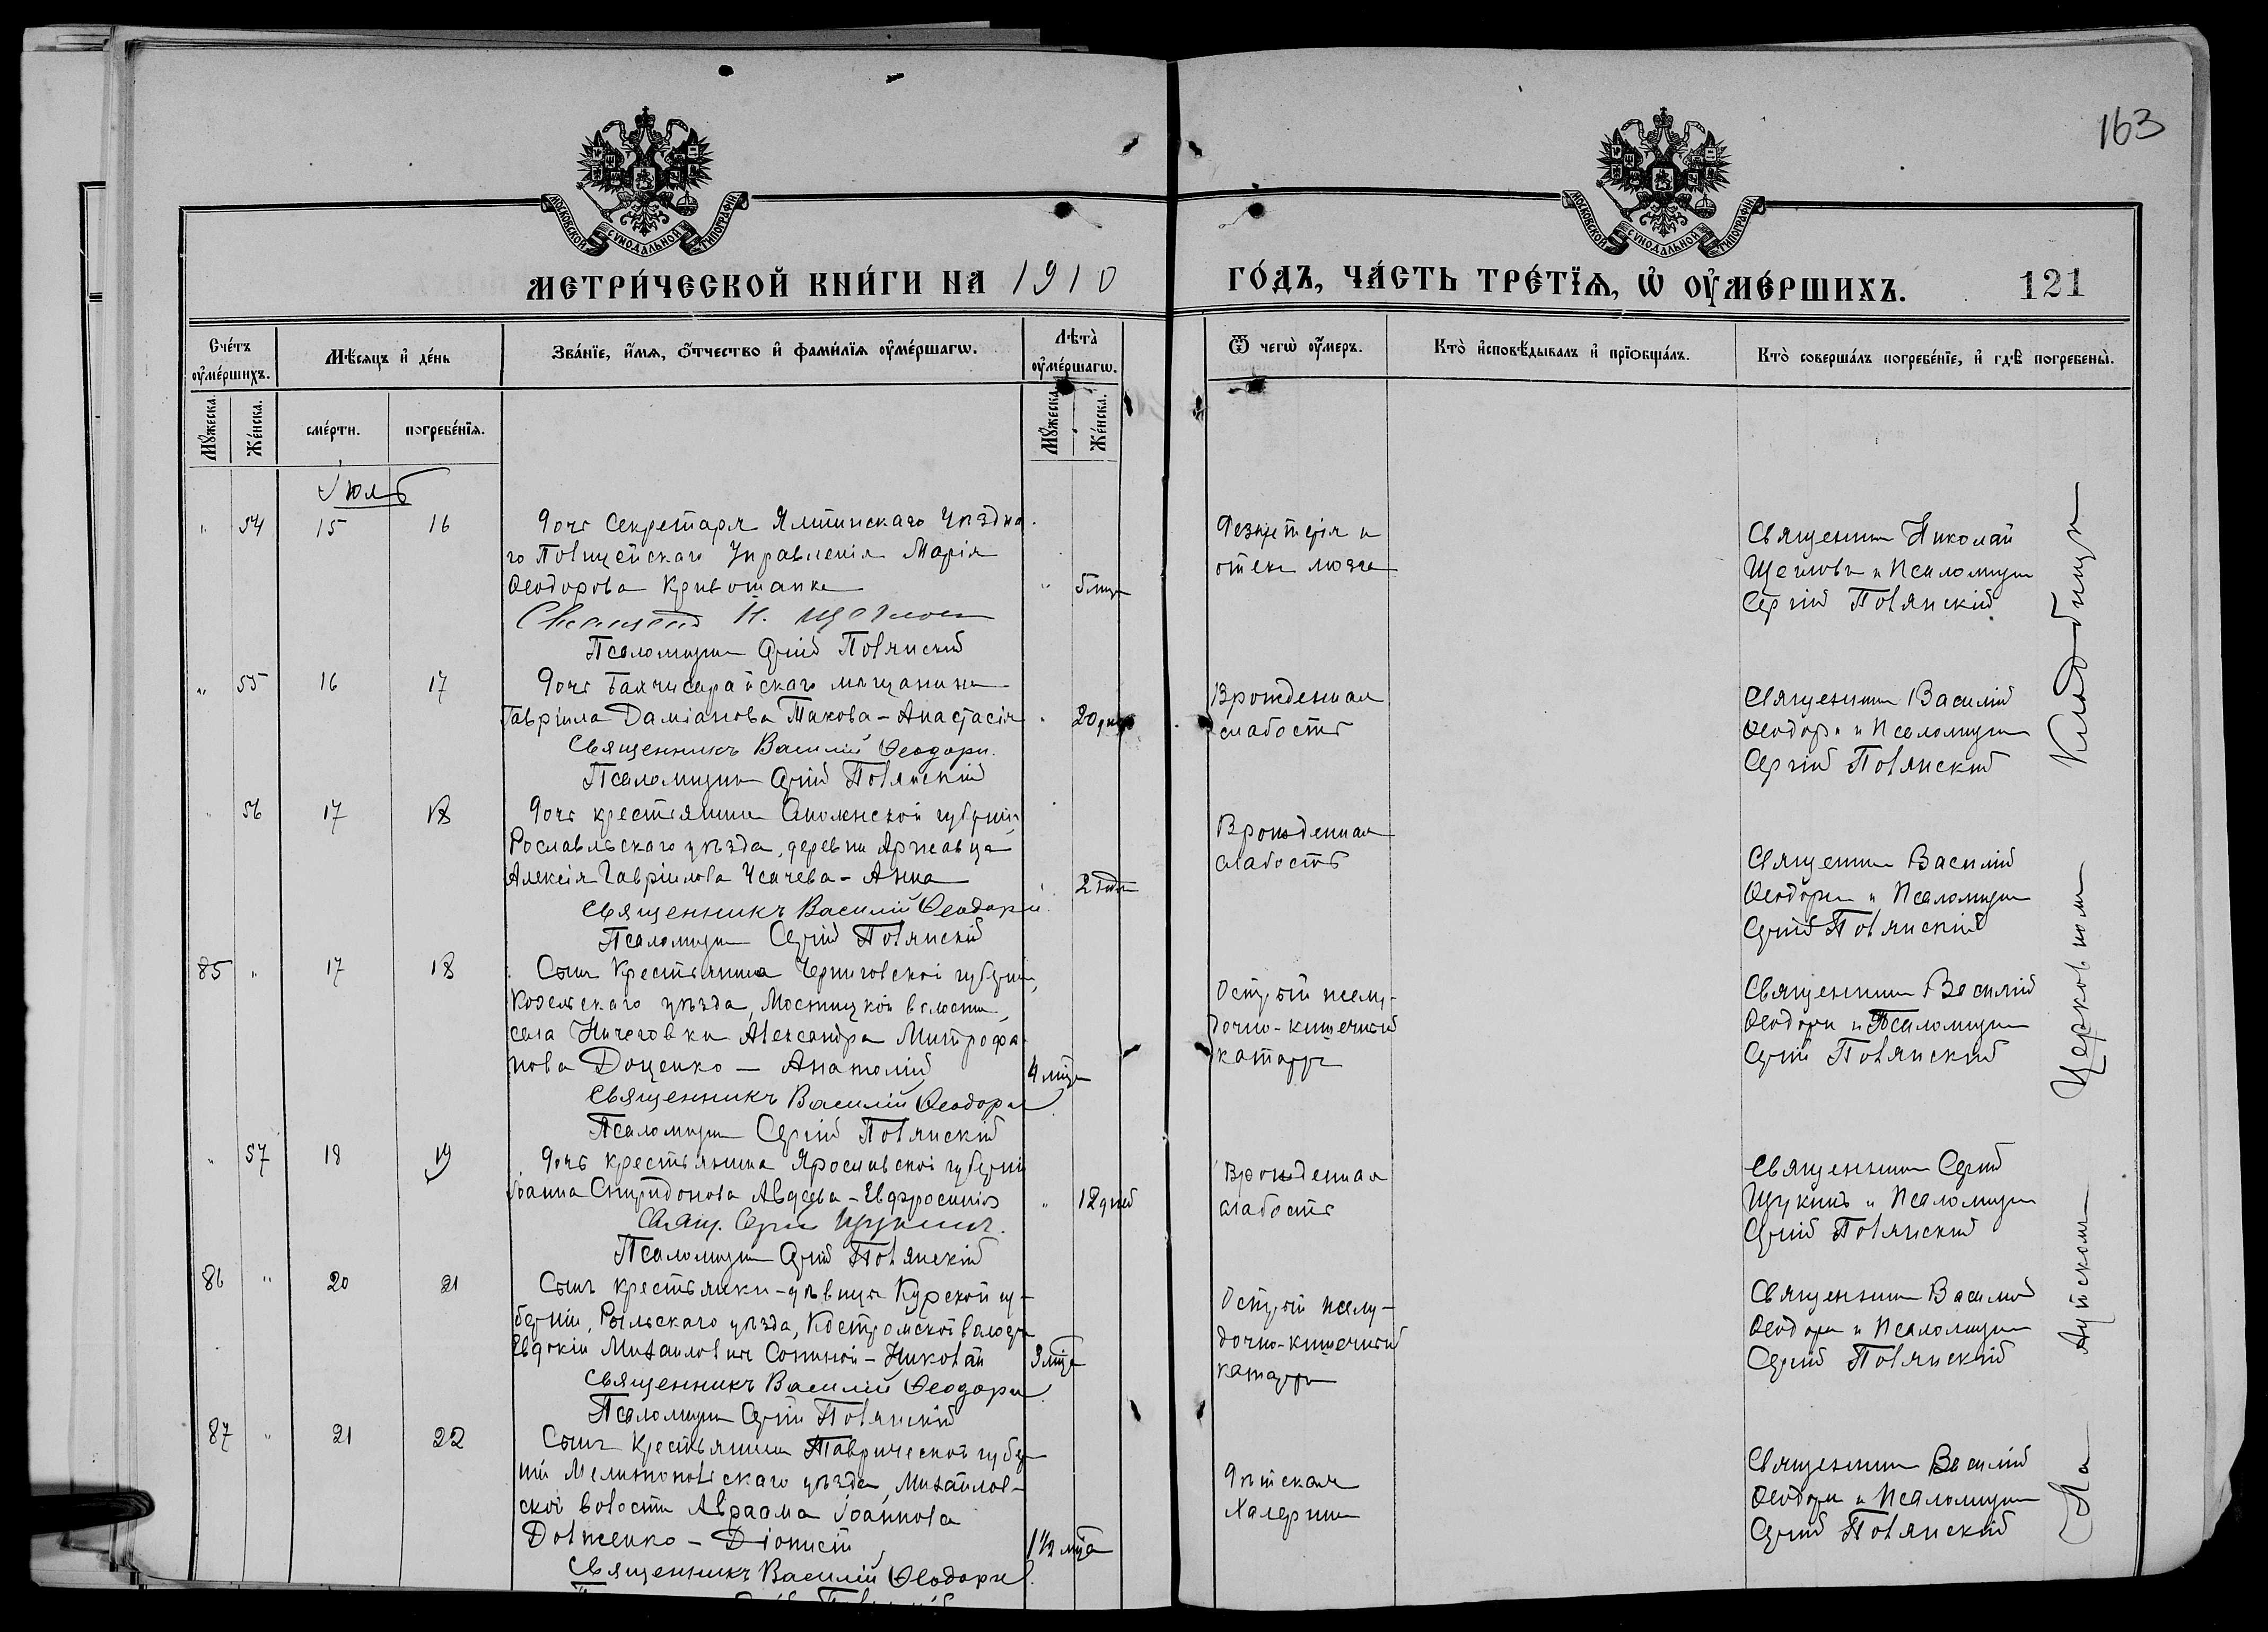 163
МОСКОВСКОЙ СѴНОДАЛЬНОЙ ТИПОГРАФІИ
МОСКОВСКОЙ СѴНОДАЛЬНОЙ ТИПОГРАФІИ
МЕТРИ́ЧЕСКОЙ КНИ́ГИ НА 1910 ГО́ДЪ, ЧА́СТЬ ТРЕ́ТЇѦ, Ѡ҆ ОУ҆МЕ́РШИХЪ. 121
Сче́тъ оу҆ме́ршихъ.
Мѣ́сяцъ и҆ де́нь
Зва́нїе, и҆́мѧ, ѻ҆́тчество и҆ фами́лїѧ оу҆ме́ршагѡ.
Лѣта̀ оу҆ме́ршагѡ.
Ѿ чегѡ̀ оу҆́меръ.
Кто̀ и҆сповѣ́дывалъ и҆ прїѻбща́лъ.
Кто̀ соверша́лъ погребе́нїе, и҆ гдѣ̀ погребены̀.
Мꙋ́жеска.
Же́нска.
сме́рти.
погребе́нїѧ.
Мꙋ́жеска.
Же́нска.
Іюль
" 54 15 16
Дочь Секретаря Ялтинскаго Уѣздна
го Полицейскаго Управленія Марія
Ѳеодорова Кривошапка
"
Священникъ Н. Щегловъ
Псаломщикъ Сергій Полянскій
Дезинтерія и
отекъ мозга
Священникъ Николай
Щегловъ и Псаломщикъ
Сергій Полянскій
" 55 16 17
Дочь Бахчисарайскаго мѣщанина
Гавріила Даміанова Тикова - Анастасія
" 20 дней
Священникъ Василій Ѳеодори.
Псаломщикъ Сергій Полянскій
Врожденная
слабость
Священникъ Василій
Ѳеодори и Псаломщикъ
Сергій Полянскій
" 56 17 18
Дочь крестьянина Смоленской губерніи
Рославльскаго уѣзда, деревни
Алексія Гавріилова - Анна
"
Священникъ Василій Ѳеодори
Псаломщикъ Сергій Полянскій
Врожденная
слабость
Священникъ Василій
Ѳеодори и Псаломщикъ
Сергій Полянскій
85 " 17 18
Сынъ Крестьянина Черниговской губерніи,
Козельскаго уѣзда, Мостищкой волости,
села Ничеговки Александра Митрофа
нова Доценко - Анатолій
4 мѣс
Священникъ Василій Ѳеодори
Псаломщикъ Сергій Полянскій
Острый желу-
дочно-кишечный
катарръ
Священникъ Василій
Ѳеодори и Псаломщикъ
Сергій Полянскій
" 57 18 19
Дочь крестьянина Ярославской губерніи
Іоанна Спиридонова Авдеева - Евфросинія
" 12 дней
Свящ. Сергій Щукинъ.
Псаломщикъ Сергій Полянскій
Врожденная
слабость
Священникъ Сергій
Щукинъ и Псаломщикъ
Сергій Полянскій
86 " 20 21
Сынъ крестьянки-дѣвицы Курской гу-
берніи, Рыльскаго уѣзда, Костромской волости
Евдокіи Михаиловны Сониной - Николай
Священникъ Василій Ѳеодори
Псаломщикъ Сергій Полянскій
Острый желу-
дочно-кишечный
катарръ
Священникъ Василій
Ѳеодори и Псаломщикъ
Сергій Полянскій
87 " 21 22
Сынъ Крестьянина Таврической губер
ніи Мелитопольскаго уѣзда, Михайлов-
ской волости Авраама Іоаннова
Долженко - Діонисій
1½ мѣс
Священникъ Василій Ѳеодори
Дѣтская
Халерина
Священникъ Василій
Ѳеодори и Псаломщикъ
Сергій Полянскій
На Аутскомъ Церковномъ Кладбищѣ